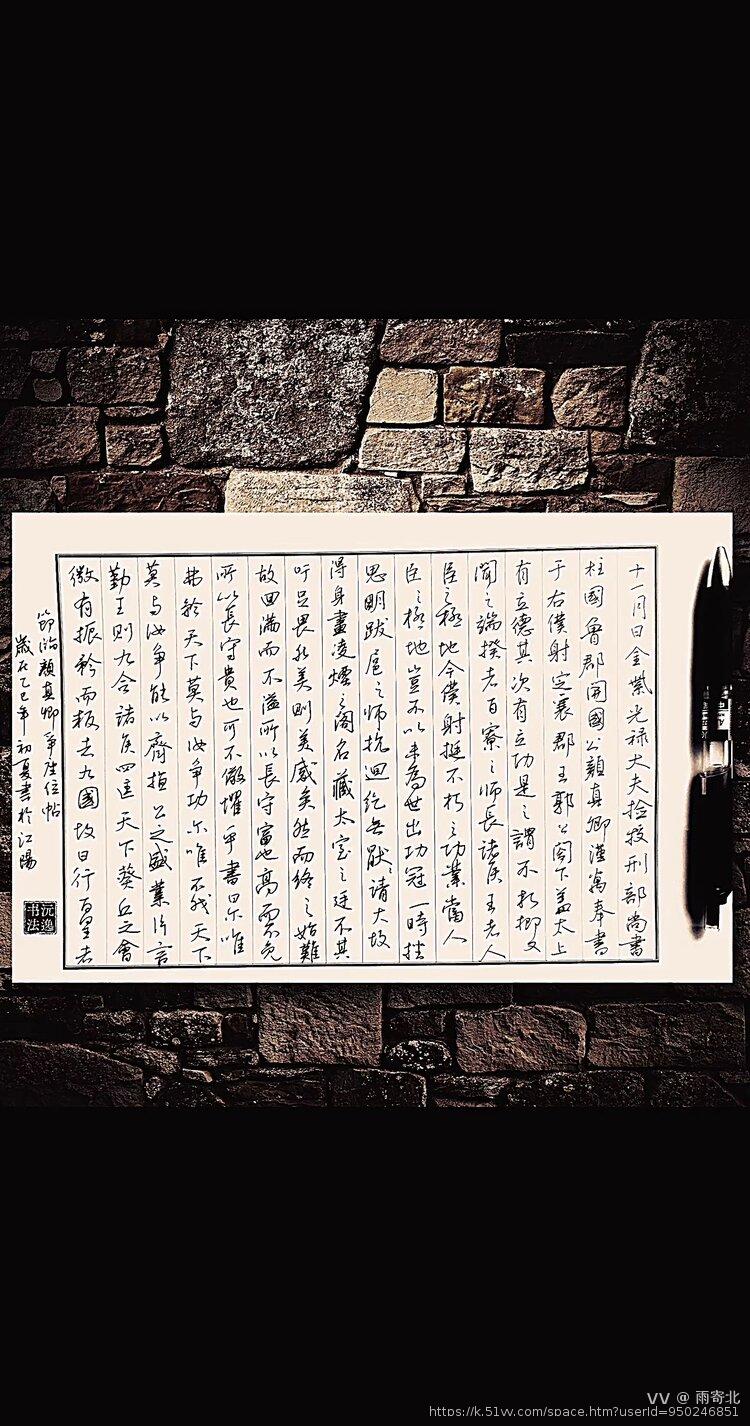 十一月日金紫光禄大夫捡挍刑部尚書
柱國魯郡開國公顏真卿谨萬奉書
于右僕射定襄郡王郭公閣下蓋太上
有立德其次有立功是之謂不朽抑又
聞之端揆者百寮之師長諸侯王者人
臣之極地今僕射挺不朽之功業當人
臣之極地豈不以才為世出功冠一時挫
思明跋扈之師抗迴紇無猒請大故
得身畫凌煙之阁名藏太室之廷不其
吁足畏然美則美盛矣然而終之始難
故曰滿而不溢所以長守富也高而不危
所以長守貴也可不儆懼乎書曰尔唯
弗矜天下莫与汝爭功尔唯不伐天下
莫与汝爭能以齊桓公之盛業片言
勤王則九合諸侯四匡天下葵丘之會
微有振矜而叛者九國故曰行百里者
節臨顏真卿爭座位帖
歲在乙巳年初夏書於江陽
沅逸
书法
VV @ 雨寄北
https://k.51vv.com/space.htm?userId=950246851